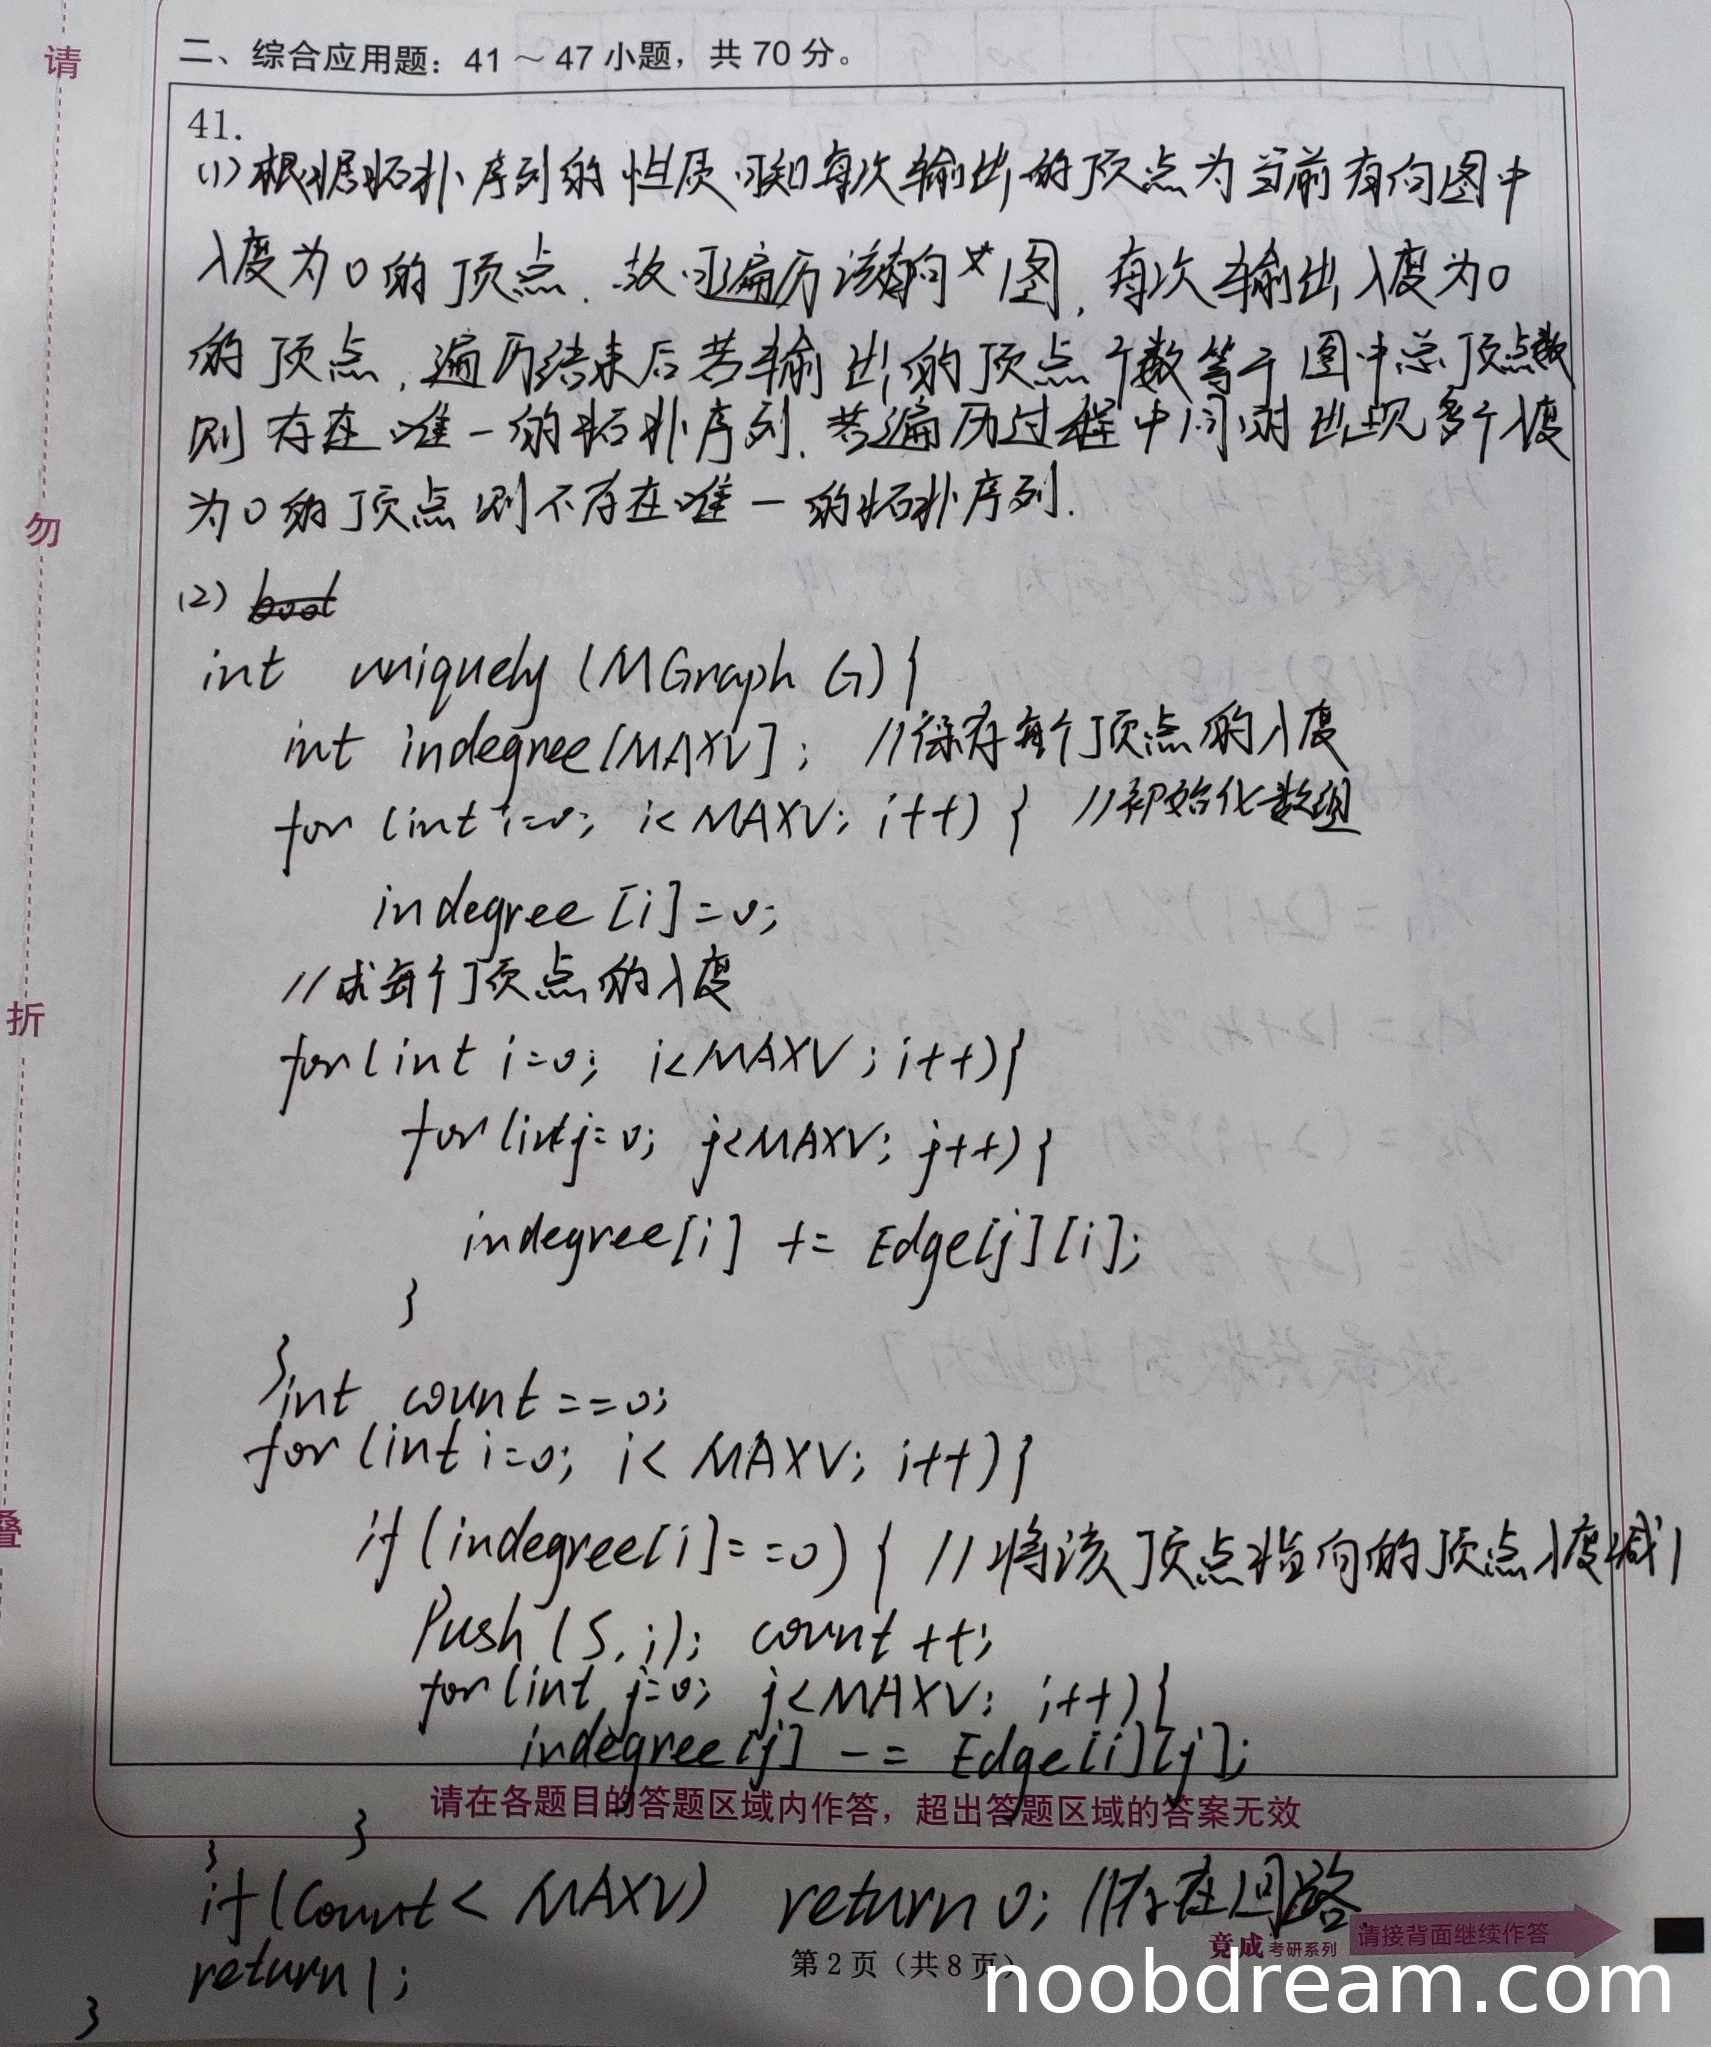 请
勿
折
叠
二、综合应用题：41～47小题，共70分。
41.
(1)根据拓扑序列的性质可知每次输出的顶点为当前有向图中
入度为0的顶点.故可遍历该有向图,每次输出入度为0
的顶点,遍历结束后若输出的顶点个数等于图中总顶点数
则存在唯一的拓扑序列.若遍历过程中同时出现多个入度
为0的顶点则不存在唯一的拓扑序列.
(2) bool
int uniquely (MGraph G){
int indegree[MAXV]; //保存每个顶点的入度
for (int i=0; i<MAXV; i++) { //初始化数组
indegree[i]=0;
//求每个顶点的入度
for(int i=0; i<MAXV; i++){
for(int j=0; j<MAXV; j++){
indegree[i] += Edge[j][i];
}
}
int count==0;
for(int i=0; i<MAXV; i++){
if(indegree[i]==0){ //将该顶点指向的顶点入度减1
Push(S,i); count++;
for(int j=0; j<MAXV; i++){
indegree[j] -= Edge[i][j];
请在各题目的答题区域内作答，超出答题区域的答案无效
}
}
if(Count<MAXV) return 0; //存在回路.
竟成考研系列 请接背面继续作答
第2页（共8页）
return 1;
}
noobdream.com